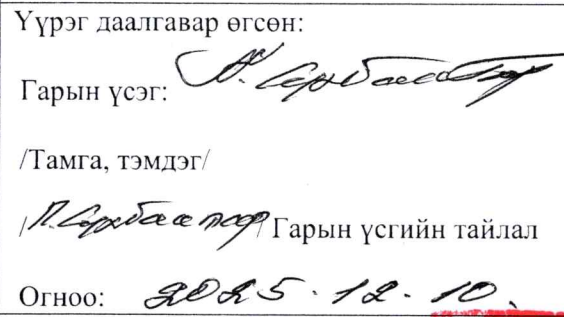 Үүрэг даалгавар өгсөн:
Гарын үсэг:
/Тамга, тэмдэг/
/П. Сүхбаатар/ Гарын үсгийн тайлал
Огноо: 2025.12.10.